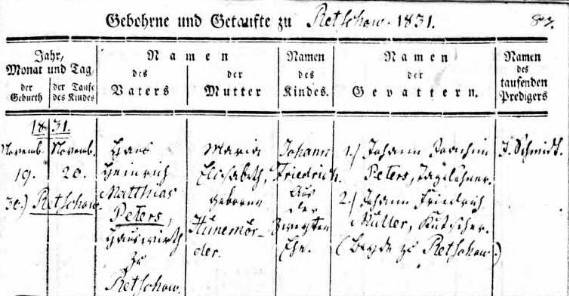 Gebohrne und Getaufte zu Retschow. 1831. 87.
Jahr, Monat und Tag
der Geburth
der Taufe des Kindes
Namen des Vaters
Namen der Mutter
Namen des Kindes.
Namen der Gevattern.
Namen des taufenden Predigers
1831.
Novemb. 19.
Novemb. 20.
30.) Retschow.
Hans
Heinrich
Matthias
Peters,
Hauswirth
zu
Retschow.
Maria
Elisabeth,
geborne
Hünemör-
der.
Johann
Friedrich.
Aus
der
zweyten
Ehe.
1.) Johann Joachim
Peters, Tagelöhner.
2.) Johann Friedrich
Müller, Kutscher.
(Beyde zu Retschow.)
J. Schmidt.